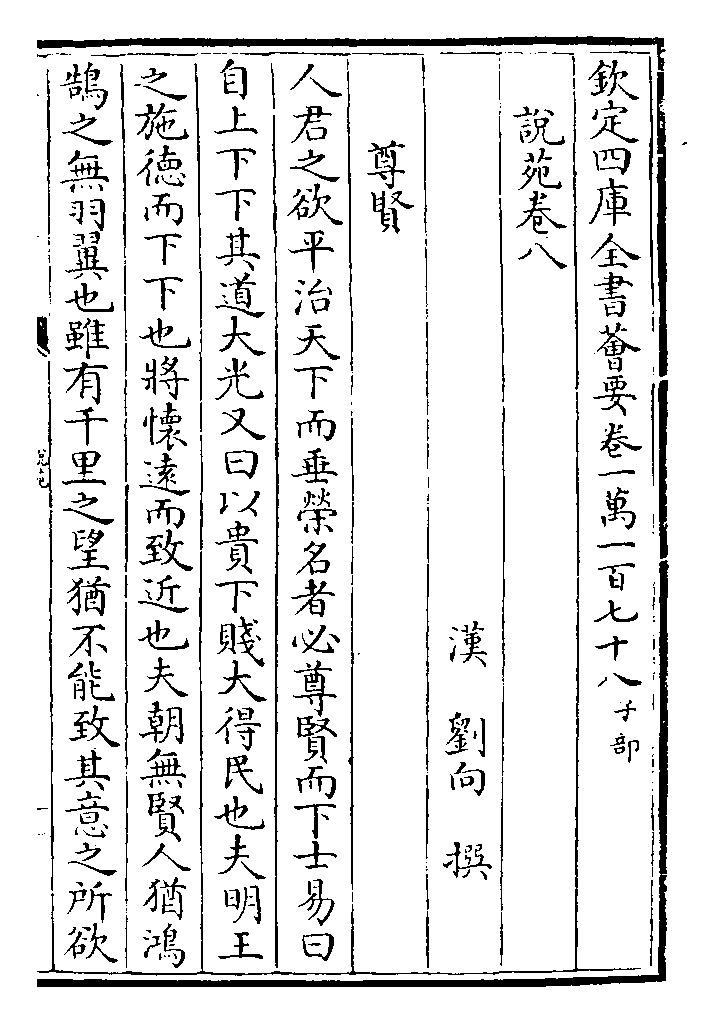 欽定四庫全書薈要卷一萬一百七十八子部
說苑卷八
漢劉向撰
尊賢
人君之欲平治天下而垂榮名者必尊賢而下士易曰
自上下下其道大光又曰以貴下賤大得民也夫明王
之施德而下下也將懷遠而致近也夫朝無賢人猶鴻
鵠之無羽翼也雖有千里之望猶不能致其意之所欲
說苑